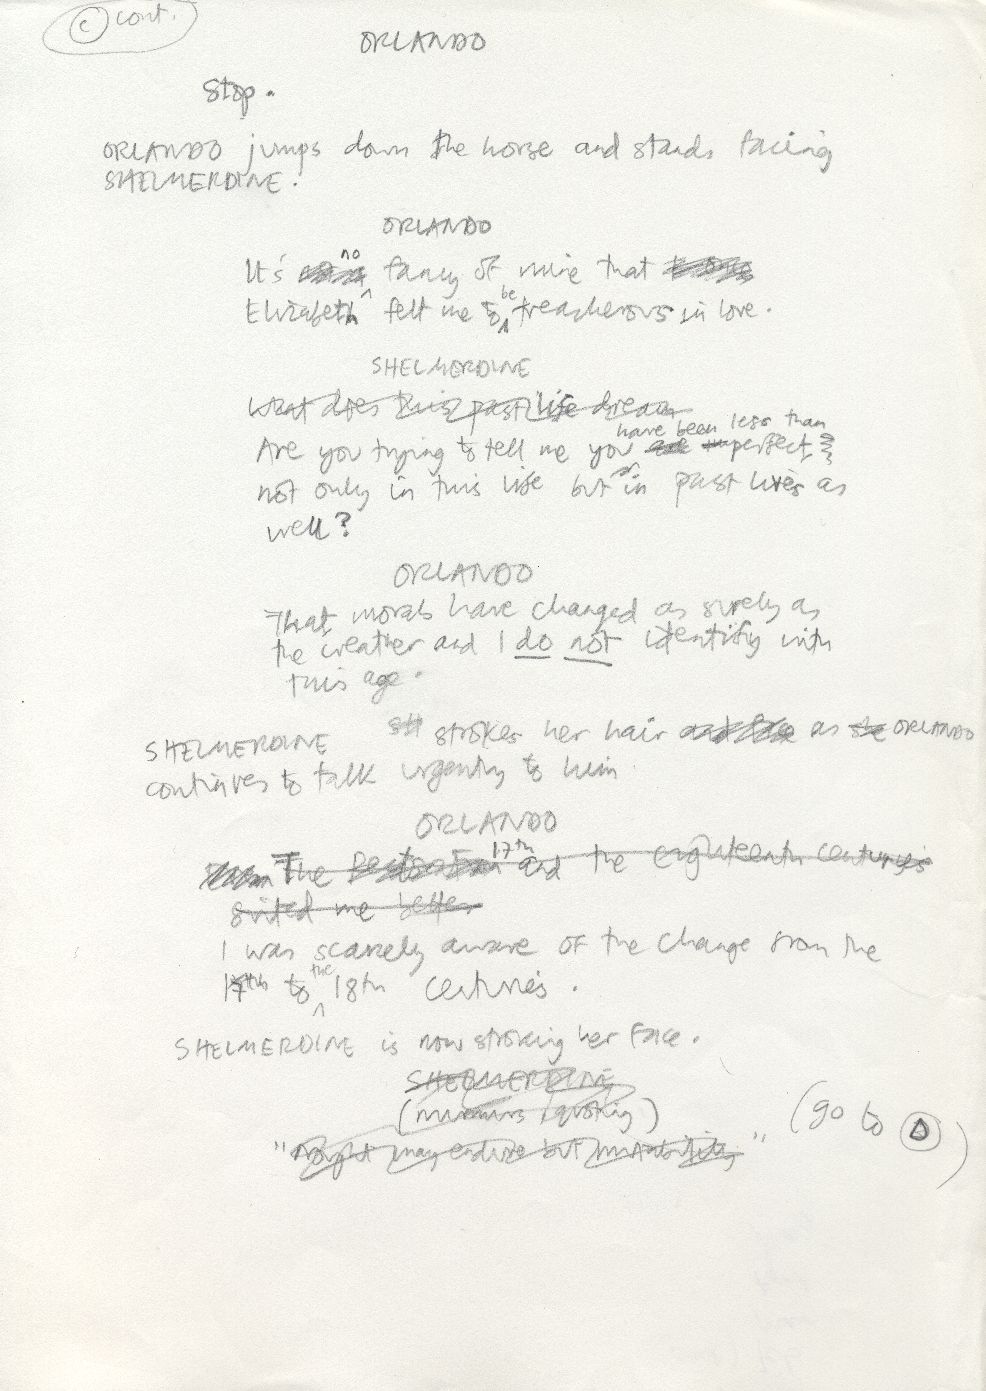 © cont.
ORLANDO
Stop.
ORLANDO jumps down the horse and stands facing
SHELMERDINE.
ORLANDO
no
It's fancy of mine that
be
Elizabeth felt me to treacherous in love.
SHELMERDINE
What does this past life dream
have been less than
Are you trying to tell me you perfect,
not only in this life but in past lives as
well?
ORLANDO
That morals have changed as surely as
the weather and I do not identifiy with
this age.
SHELMERDINE SH strokes her hair as she ORLANDO
continues to talk urgently to him.
ORLANDO
17th
The and the eighteenth centuries
suited me better
I was scarcely aware of the change from the
the
17th to 18th centuries.
SHELMERDINE is now stroking her face.
SHELMERDINE
(murmurs, quoting)
(go to D)
"Nought may endure but mutability"